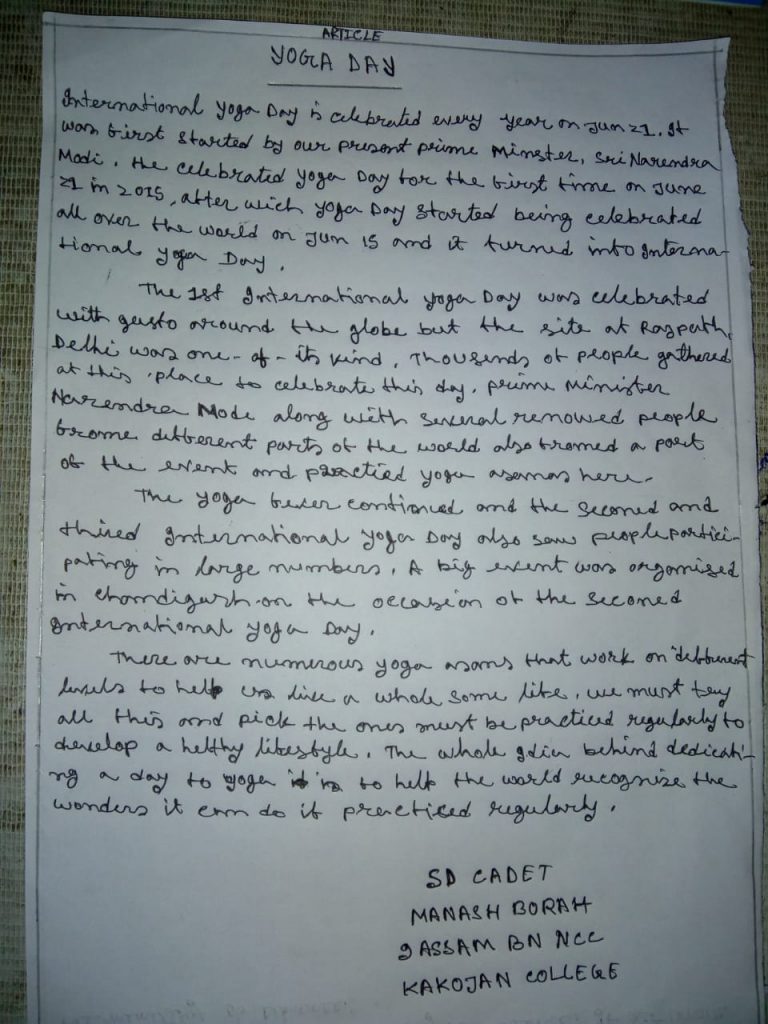 ARTICLE
YOGA DAY
International Yoga Day is celebrated every year on Jun 21. It
was first started by our present prime Minster, Sri Narendra
Modi. He celebrated Yoga Day for the first time on June
21 in 2015, after wich Yoga Day started being celebrated
all over the world on Jun 15 and it turned into Interna-
tional Yoga Day.
The 1st International Yoga Day was celebrated
with gusto around the globe but the site at Rajpath,
Delhi was one-of-its kind. Thousends of people gathered
at this place to celebrate this day. prime Minister
Narendra Modi along with several renowed people
frome different parts of the world also fromed a part
of the event and practied yoga asamas here.
The yoga fever continued and the second and
thired International Yoga Day also saw people partici-
pating in large numbers. A big event was organised
in chandigarh on the occasion of the second
International Yoga Day.
There are numerous yoga asans that work on different
levels to help us live a whole some life. we must try
all this and pick the ones must be practiced regularly to
develop a helthy lifestyle. The whole idia behind dedicati-
ng a day to yoga is to help the world recognize the
wonders it can do if practiced regularly.
SD CADET
MANASH BORAH
9 ASSAM BN NCC
KAKOJAN COLLEGE